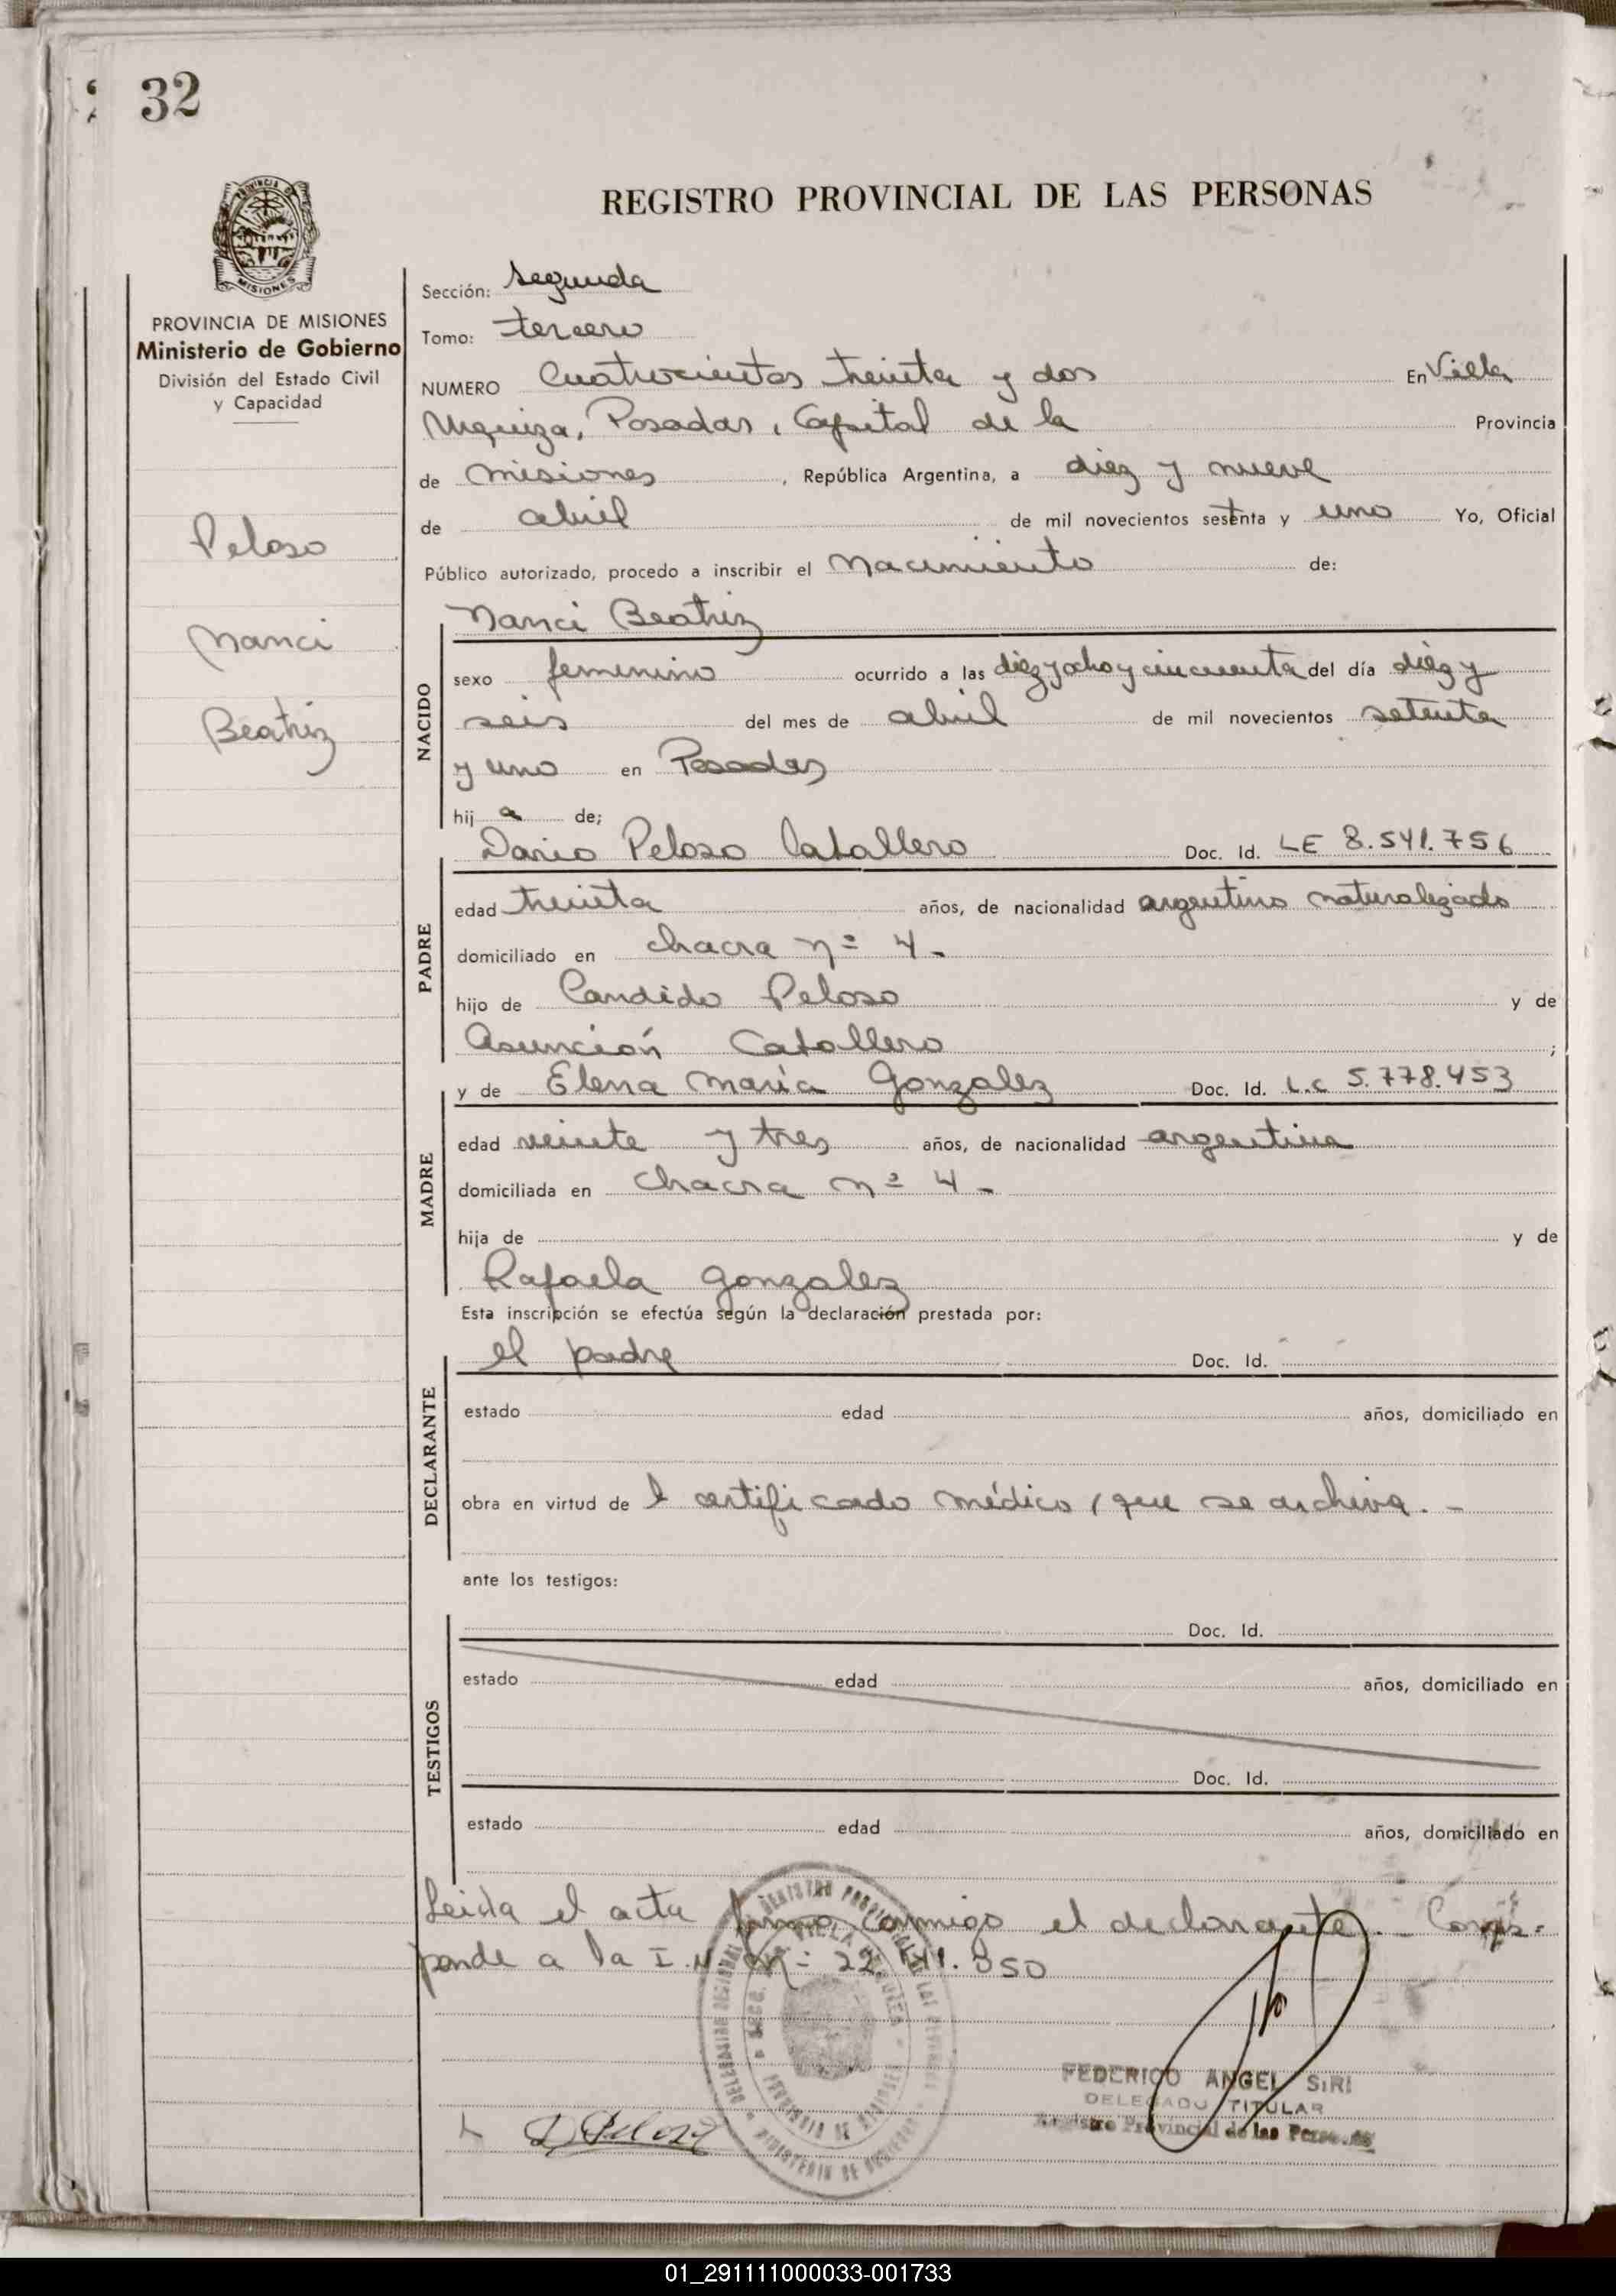 32
REGISTRO PROVINCIAL DE LAS PERSONAS
PROVINCIA DE
MISIONES
PROVINCIA DE MISIONES
Ministerio de Gobierno
División del Estado Civil
y Capacidad
Peloso
Nanci
Beatriz
Sección: Segunda
Tomo: tercero
NUMERO Cuatrocientos treinta y dos En Villa
Urquiza, Posadas, Capital de la Provincia
de Misiones, República Argentina, a diez y nueve
de abril de mil novecientos sesenta y uno Yo, Oficial
Público autorizado, procedo a inscribir el Nacimiento de:
Nanci Beatriz
NACIDO
sexo femenino ocurrido a las diez y ocho y cincuenta del día diez y
seis del mes de abril de mil novecientos setenta
y uno en Posadas
hij a de;
Dario Peloso Caballero Doc. Id. LE 8.541.756
PADRE
edad treinta años, de nacionalidad argentino naturalizado
domiciliado en chacra nº 4.-
hijo de Candido Peloso y de
Asunción Caballero ;
y de Elena María Gonzalez Doc. Id. L.C 5.778.453
MADRE
edad veinte y tres años, de nacionalidad argentina
domiciliada en Chacra nº 4-
hija de y de
Rafaela Gonzalez
Esta inscripción se efectúa según la declaración prestada por:
el padre Doc. Id.
DECLARANTE
estado edad años, domiciliado en
obra en virtud de l certificado médico, que se archiva.-
ante los testigos:
Doc. Id.
TESTIGOS
estado edad años, domiciliado en
Doc. Id.
estado edad años, domiciliado en
Leida el acta firma conmigo el declarante. Corres=
ponde a la I.N. nº
FEDERICO ANGEL SIRI
DELEGADO TITULAR
Registro Provincial de las Personas
D Peloso
01_291111000033-001733